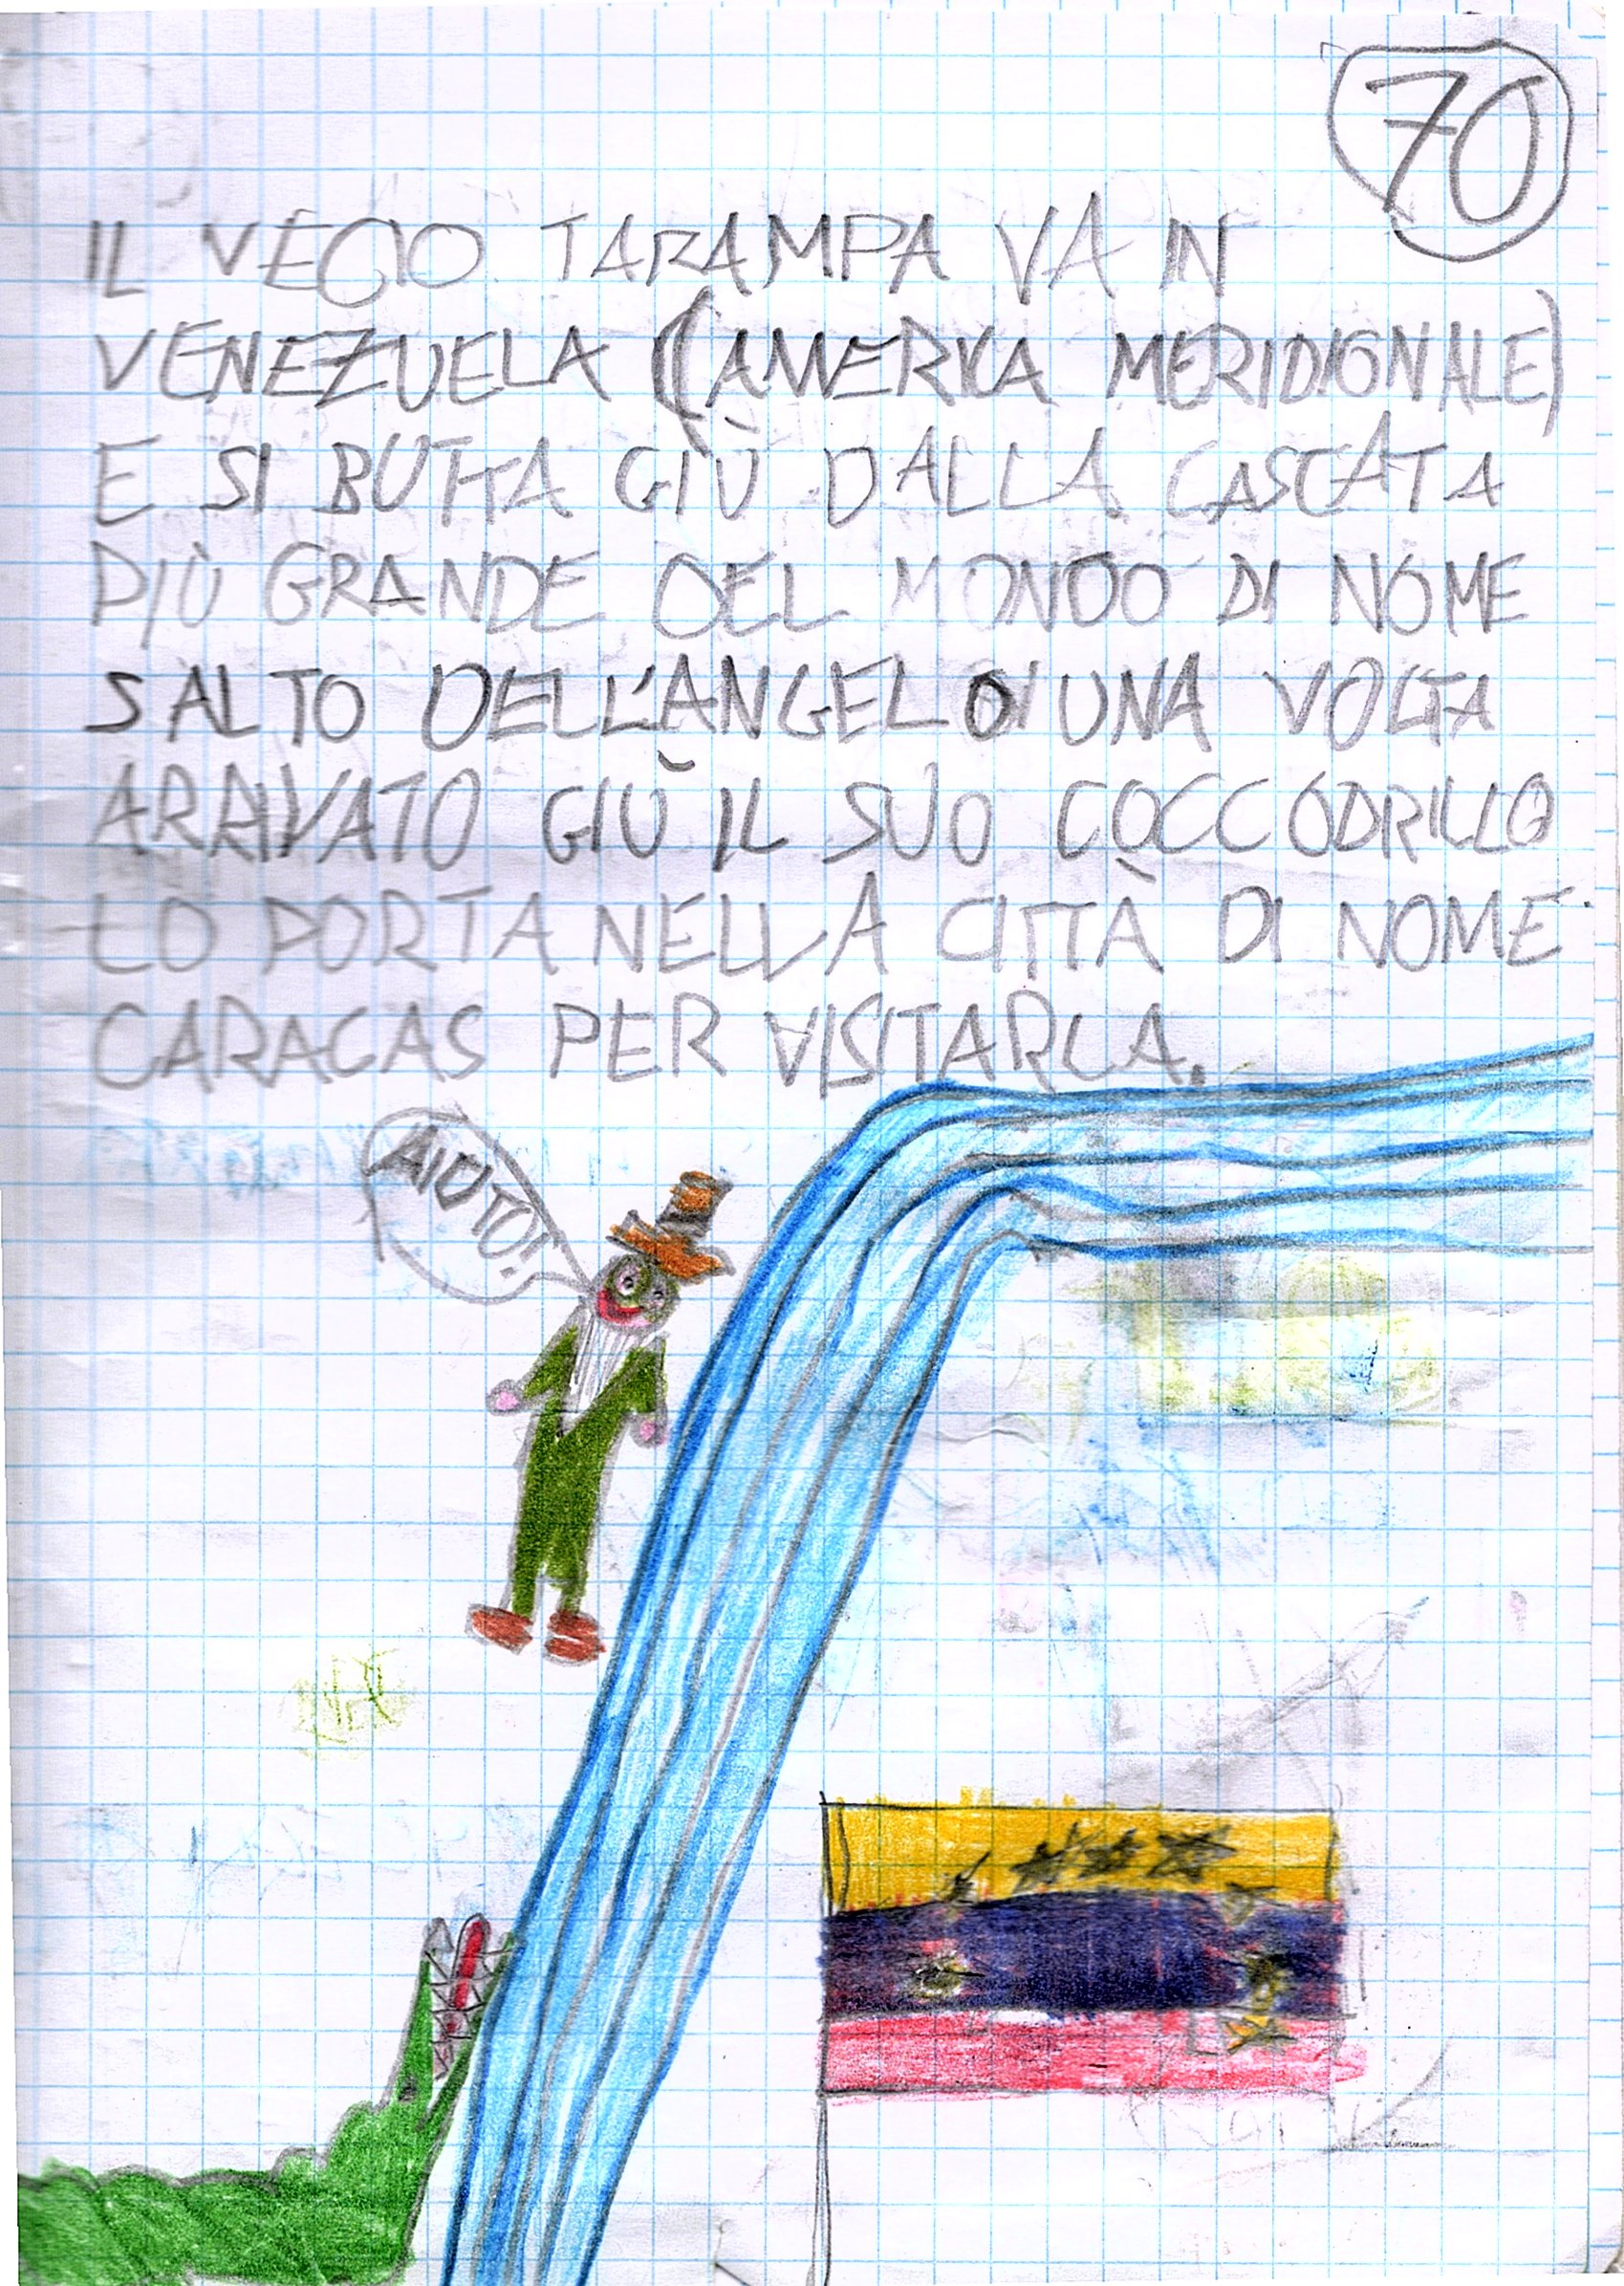 70
IL VECIO TARAMPA VA IN
VENEZUELA (AMERICA MERIDIONALE)
E SI BUTTA GIÙ DALLA CASCATA
PIÙ GRANDE DEL MONDO DI NOME
SALTO DELL'ANGELO UNA VOLTA
ARRIVATO GIÙ IL SUO COCCODRILLO
LO PORTA NELLA CITTÀ DI NOME
CARACAS PER VISITARLA.
AIUTO!